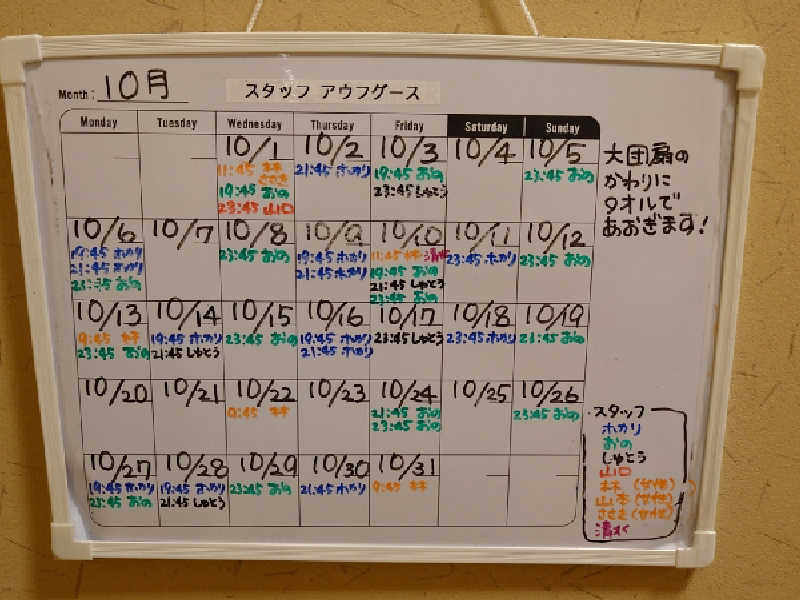 Month: 10月
スタッフ アウフグース
Monday Tuesday Wednesday Thursday Friday Saturday Sunday
10/1 10/2 10/3 10/4 10/5
11:45 林
ささき
19:45 おの
23:45 山口
21:45 ホカリ
19:45 おの
23:45 しゅとう
23:45 おの
大団扇の
かわりに
タオルで
あおぎます!
10/6 10/7 10/8 10/9 10/10 10/11 10/12
19:45 ホカリ
21:45 ホカリ
23:45 おの
23:45 おの
19:45 ホカリ
21:45 ホカリ
11:45 林
19:45 おの
21:45 しゅとう
23:45 おの
23:45 ホカリ
23:45 おの
10/13 10/14 10/15 10/16 10/17 10/18 10/19
9:45 林
23:45 おの
19:45 ホカリ
21:45 しゅとう
23:45 おの
19:45 ホカリ
21:45 ホカリ
23:45 しゅとう
23:45 ホカリ
23:45 おの
10/20 10/21 10/22 10/23 10/24 10/25 10/26
9:45 林
21:45 おの
23:45 おの
23:45 おの
10/27 10/28 10/29 10/30 10/31
19:45 ホカリ
23:45 おの
19:45 ホカリ
21:45 しゅとう
23:45 おの
21:45 ホカリ
9:45 林
スタッフ
ホカリ
おの
しゅとう
山口
林 (女性)
山本 (女性)
ささき (女性)